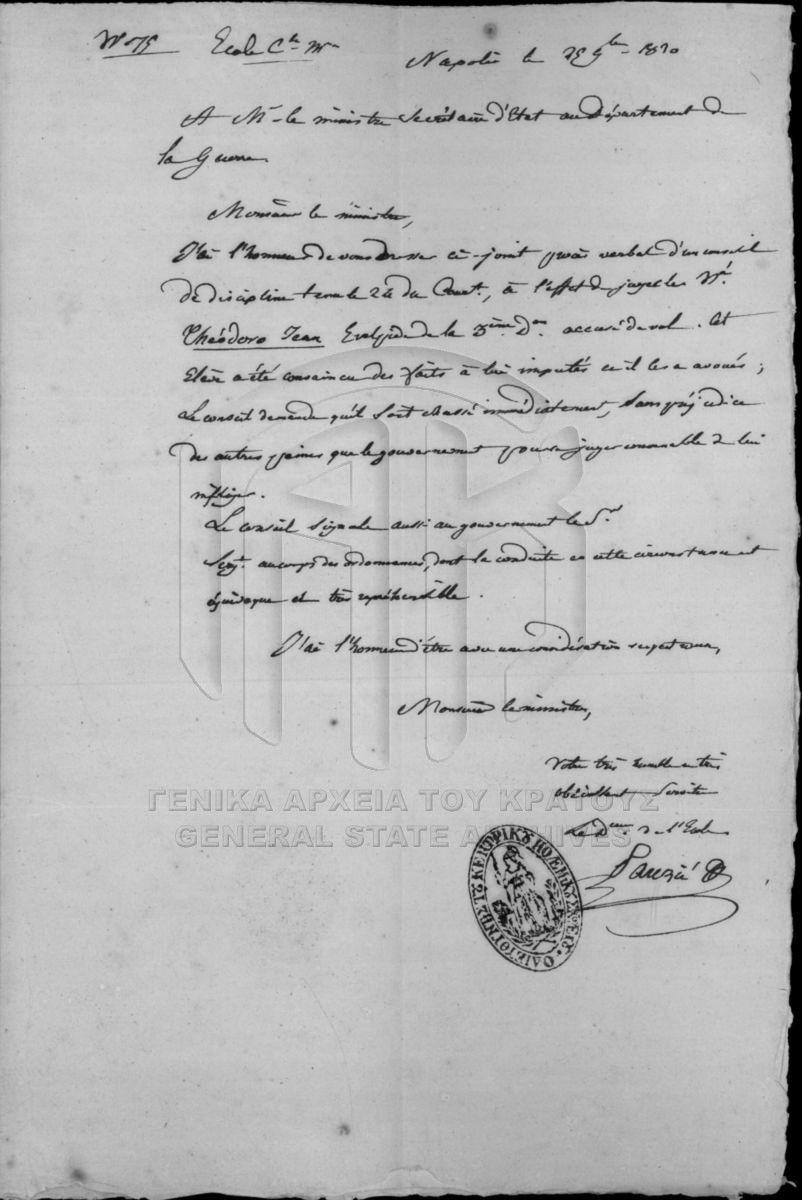 N° 75 Ecole Cle Mre
Napolie le 25 9bre 1830
A Mr le ministre Secrétaire d'Etat au Département de
la Guerre
Monsieur le ministre,
J'ai l'honneur de vous adresser ci-joint procès verbal d'un conseil
de discipline tenu le 24 du Court, à l'effet de juger le Nr
Théodore Jean Evelpide de la 3ème Don accusé de vol. Cet
Elève a été convaincu des faits à lui imputés et il les a avoués;
Le conseil demande qu'il soit chassé immédiatement, sans préjudice
des autres peines que le gouvernement pourra juger convenable de lui
infliger.
Le conseil signale aussi au gouvernement le Sr
Sergt au corps des ordonnances, dont la conduite en cette circonstance est
équivoque et très repréhensible.
J'ai l'honneur d'être avec une considération respectueuse,
Monsieur le ministre,
Votre très humble et très
obéissant Servite
Le Deur de l'Ecole
Pauzié
ΓΕΝΙΚΑ ΑΡΧΕΙΑ ΤΟΥ ΚΡΑΤΟΥΣ
GENERAL STATE ARCHIVES